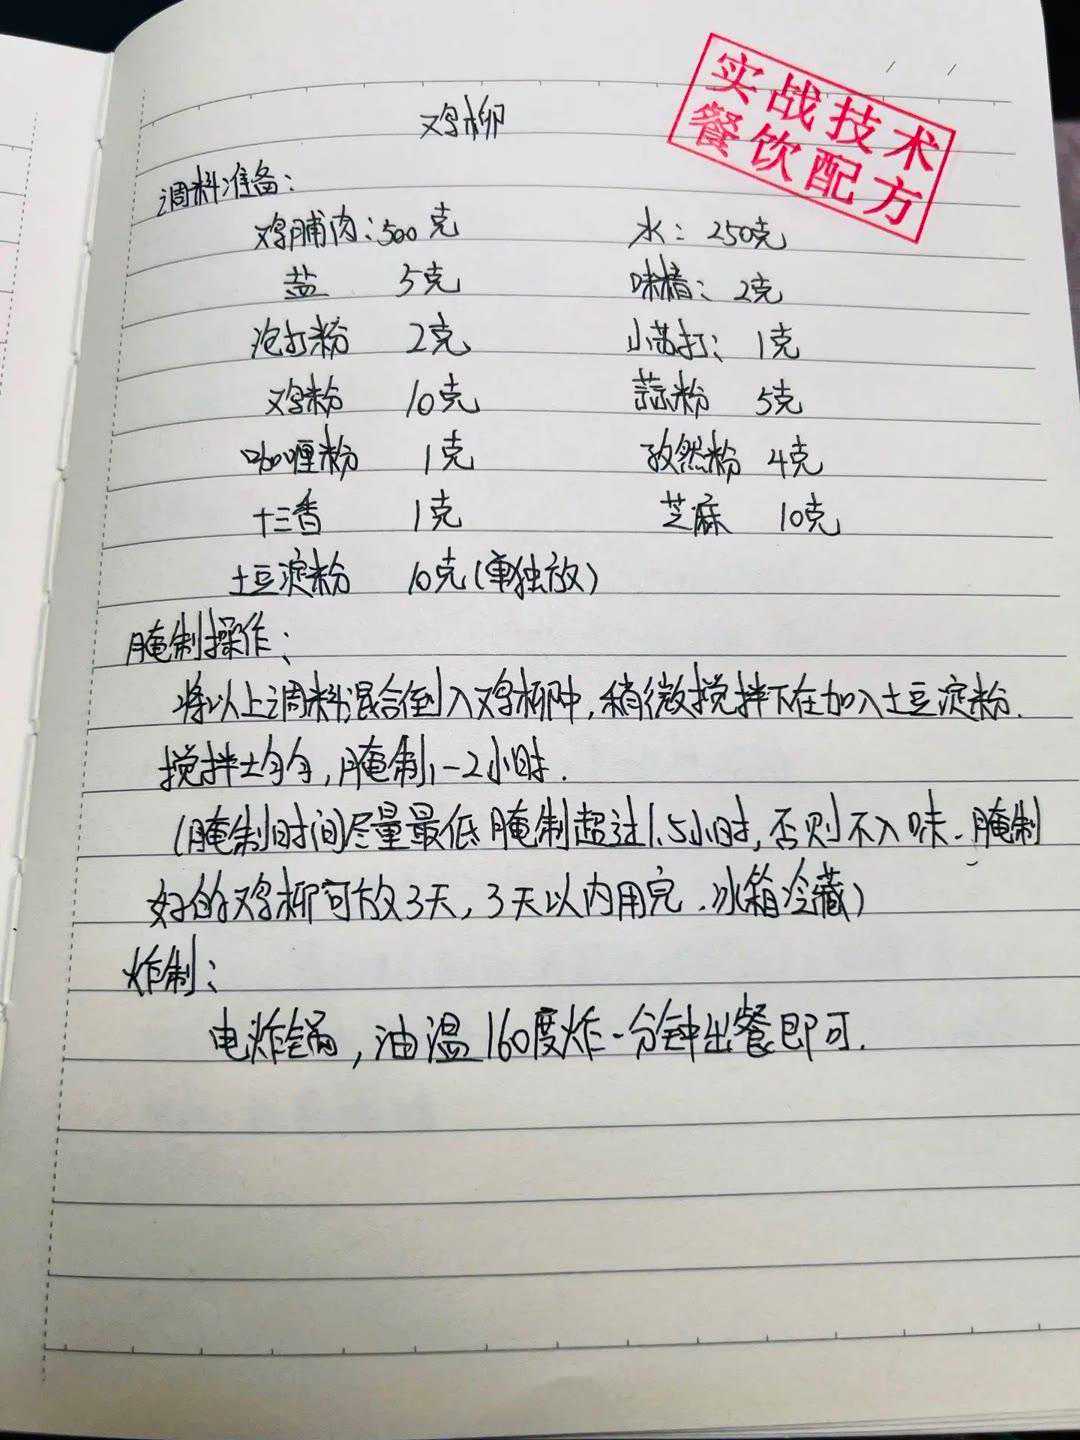 鸡柳
实战技术
餐饮配方
调料准备:
鸡脯肉:500克 水:250克
盐 5克 味精:2克
泡打粉 2克 小苏打:1克
鸡粉 10克 蒜粉 5克
咖喱粉 1克 孜然粉 4克
十三香 1克 芝麻 10克
土豆淀粉 10克(单独放)
腌制操作:
将以上调料混合倒入鸡柳中,稍微搅拌下在加入土豆淀粉.
搅拌均匀,腌制1-2小时.
(腌制时间尽量最低腌制超过1.5小时,否则不入味.腌制
好的鸡柳可放3天,3天以内用完.冰箱冷藏)
炸制:
电炸锅,油温160度炸一分钟出餐即可.